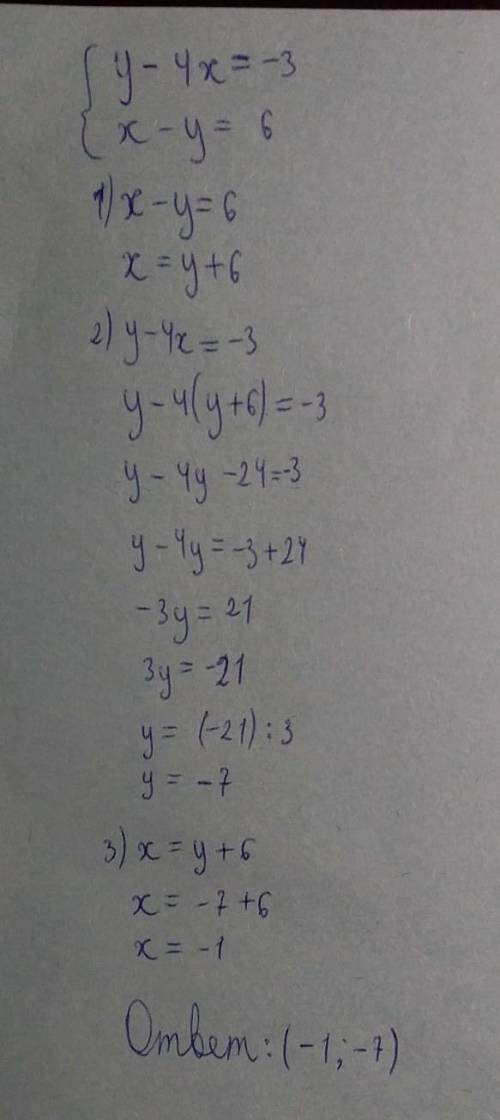 { y - 4x = -3
x - y = 6
1) x - y = 6
x = y + 6
2) y - 4x = -3
y - 4(y+6) = -3
y - 4y - 24 = -3
y - 4y = -3 + 24
-3y = 21
3y = -21
y = (-21) : 3
y = -7
3) x = y + 6
x = -7 + 6
x = -1
Ответ: (-1; -7)